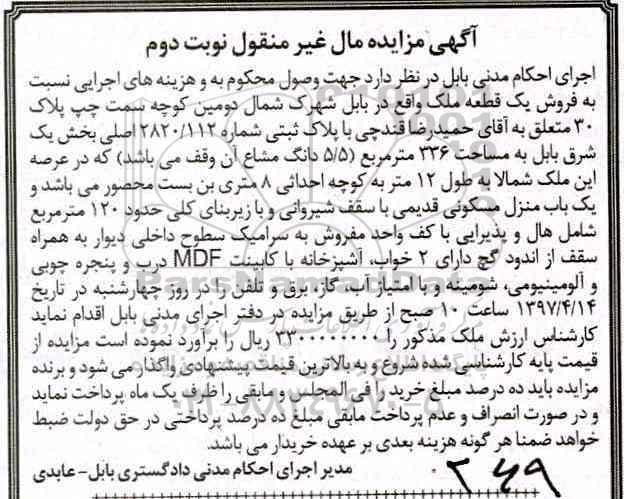 آگهی مزایده مال غیر منقول نوبت دوم
اجرای احکام مدنی بابل در نظر دارد جهت وصول محکوم به و هزینه های اجرایی نسبت
به فروش یک قطعه ملک واقع در بابل شهرک شمال دومین کوچه سمت چپ پلاک
۳۰ متعلق به آقای حمیدرضا قندچی با پلاک ثبتی شماره ۲۸۲۰/۱۱۲ اصلی بخش یک
شرق بابل به مساحت ۳۳۶ مترمربع (۵/۵ دانگ مشاع آن وقف می باشد) که در عرصه
این ملک شمالا به طول ۱۲ متر به کوچه احداثی ۸ متری بن بست محصور می باشد و
یک باب منزل مسکونی قدیمی با سقف شیروانی و با زیربنای کلی حدود ۱۲۰ مترمربع
شامل هال و پذیرایی با کف واحد مفروش به سرامیک سطوح داخلی دیوار به همراه
سقف از اندود گچ دارای ۲ خواب، آشپزخانه با کابینت MDF درب و پنجره چوبی
و آلومینیومی، شومینه و با امتیاز آب، گاز، برق و تلفن را در روز چهارشنبه در تاریخ
۱۳۹۷/۴/۱۴ ساعت ۱۰ صبح از طریق مزایده در دفتر اجرای مدنی بابل اقدام نماید
کارشناس ارزش ملک مذکور را ریال را برآورد نموده است مزایده از
قیمت پایه کارشناسی شده شروع و به بالاترین قیمت پیشنهادی واگذار می شود و برنده
مزایده باید ده درصد مبلغ خرید را فی المجلس و مابقی را ظرف یک ماه پرداخت نماید
و در صورت انصراف و عدم پرداخت مابقی مبلغ ده درصد پرداختی در حق دولت ضبط
خواهد ضمنا هر گونه هزینه بعدی بر عهده خریدار می باشد.
مدیر اجرای احکام مدنی دادگستری بابل- عابدی
ParsNamadData